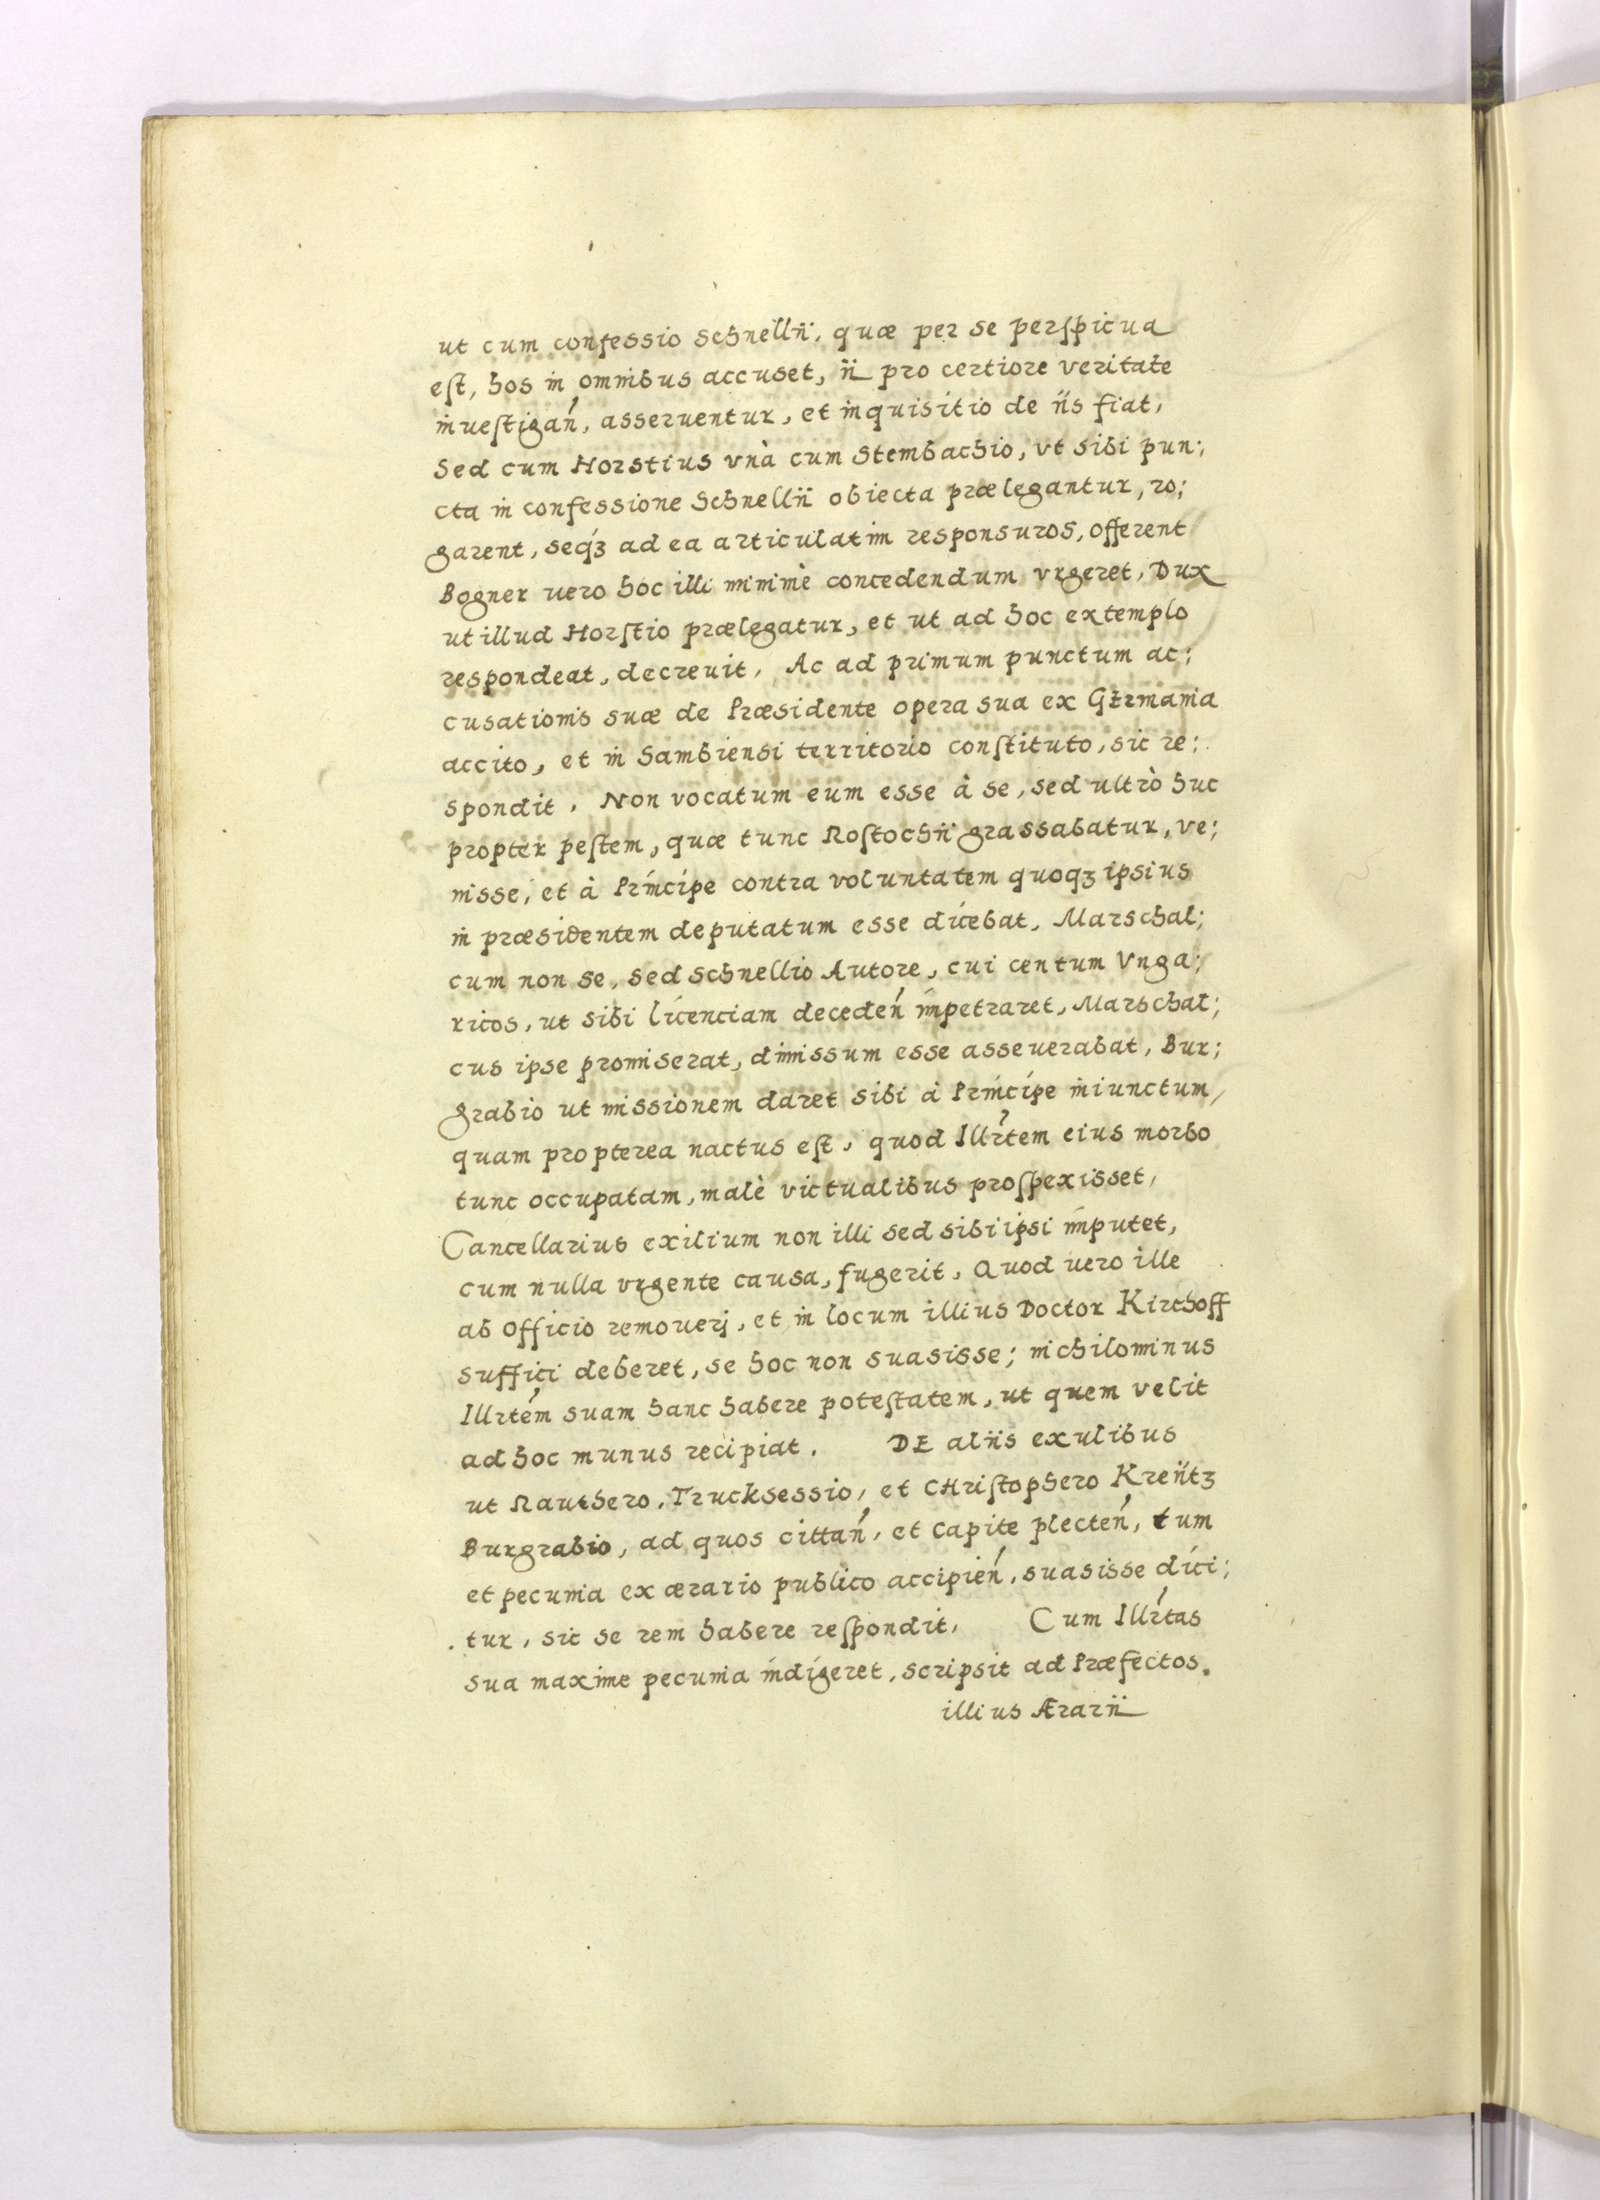 ut cum confessio Schnellii, quæ per se perspicua
est, hos in omnibus accuset, ii pro certiore veritate
inuestigań, asseruentur, et inquisitio de iis fiat,
Sed cum Horstius vnà cum Stembachio, vt sibi pun;
cta in confessione Schnellii obiecta prælegantur, ro;
garent, seqȝ ad ea articulatim responsuros, offerent
Bogner uero hoc illi minimè concedendum vrgeret, Dux
ut illud Horstio prælegatur, et ut ad hoc extemplo
respondeat, decreuit, Ac ad primum punctum ac;
cusationis suæ de Præsidente opera sua ex Germania
accito, et in Sambiensi territorio constituto, sic re;
spondit, Non vocatum eum esse à se, sed ultrò huc
propter pestem, quæ tunc Rostochii grassabatur, ve;
nisse, et à Principe contra voluntatem quoqȝ ipsius
in præsidentem deputatum esse dicebat, Marschal;
cum non se, sed Schnellio Autore, cui centum Vnga;
ricos, ut sibi licenciam decedeń impetraret, Marschal;
cus ipse promiserat, dimissum esse asseuerabat, Bur;
grabio ut missionem daret sibi à Principe iniunctum,
quam propterea nactus est, quod Illŕtem eius morbo
tunc occupatam, malè victualibus prospexisset,
Cancellarius exilium non illi sed sibi ipsi imputet,
cum nulla vrgente causa, fugerit, Quod uero ille
ab officio remouerj, et in locum illius Doctor Kirchoff
suffici deberet, se hoc non suasisse; nichilominus
Illrtém suam hanc habere potestatem, ut quem velit
ad hoc munus recipiat. DE aliis exulibus
ut Rauthero, Trucksessio, et CHristophero Kreütȝ
Burgrabio, ad quos cittań, et capite plecteń, tum
et pecunia ex ærario publico accipień, suasisse dici;
tur, sic se rem habere respondit, Cum Illŕtas
sua maxime pecunia indigeret, scripsit ad Præfectos
illius Ærarii